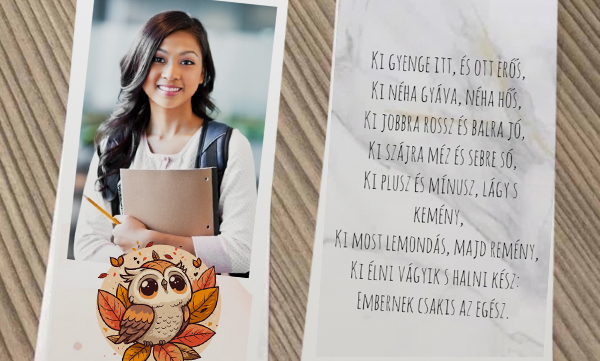 Ki gyenge itt, és ott erős,
Ki néha gyáva, néha hős,
Ki jobbra rossz és balra jó,
Ki szájra méz és sebre só,
Ki plusz és mínusz, lágy s
kemény,
Ki most lemondás, majd remény,
Ki élni vágyik s halni kész:
Embernek csakis az egész.